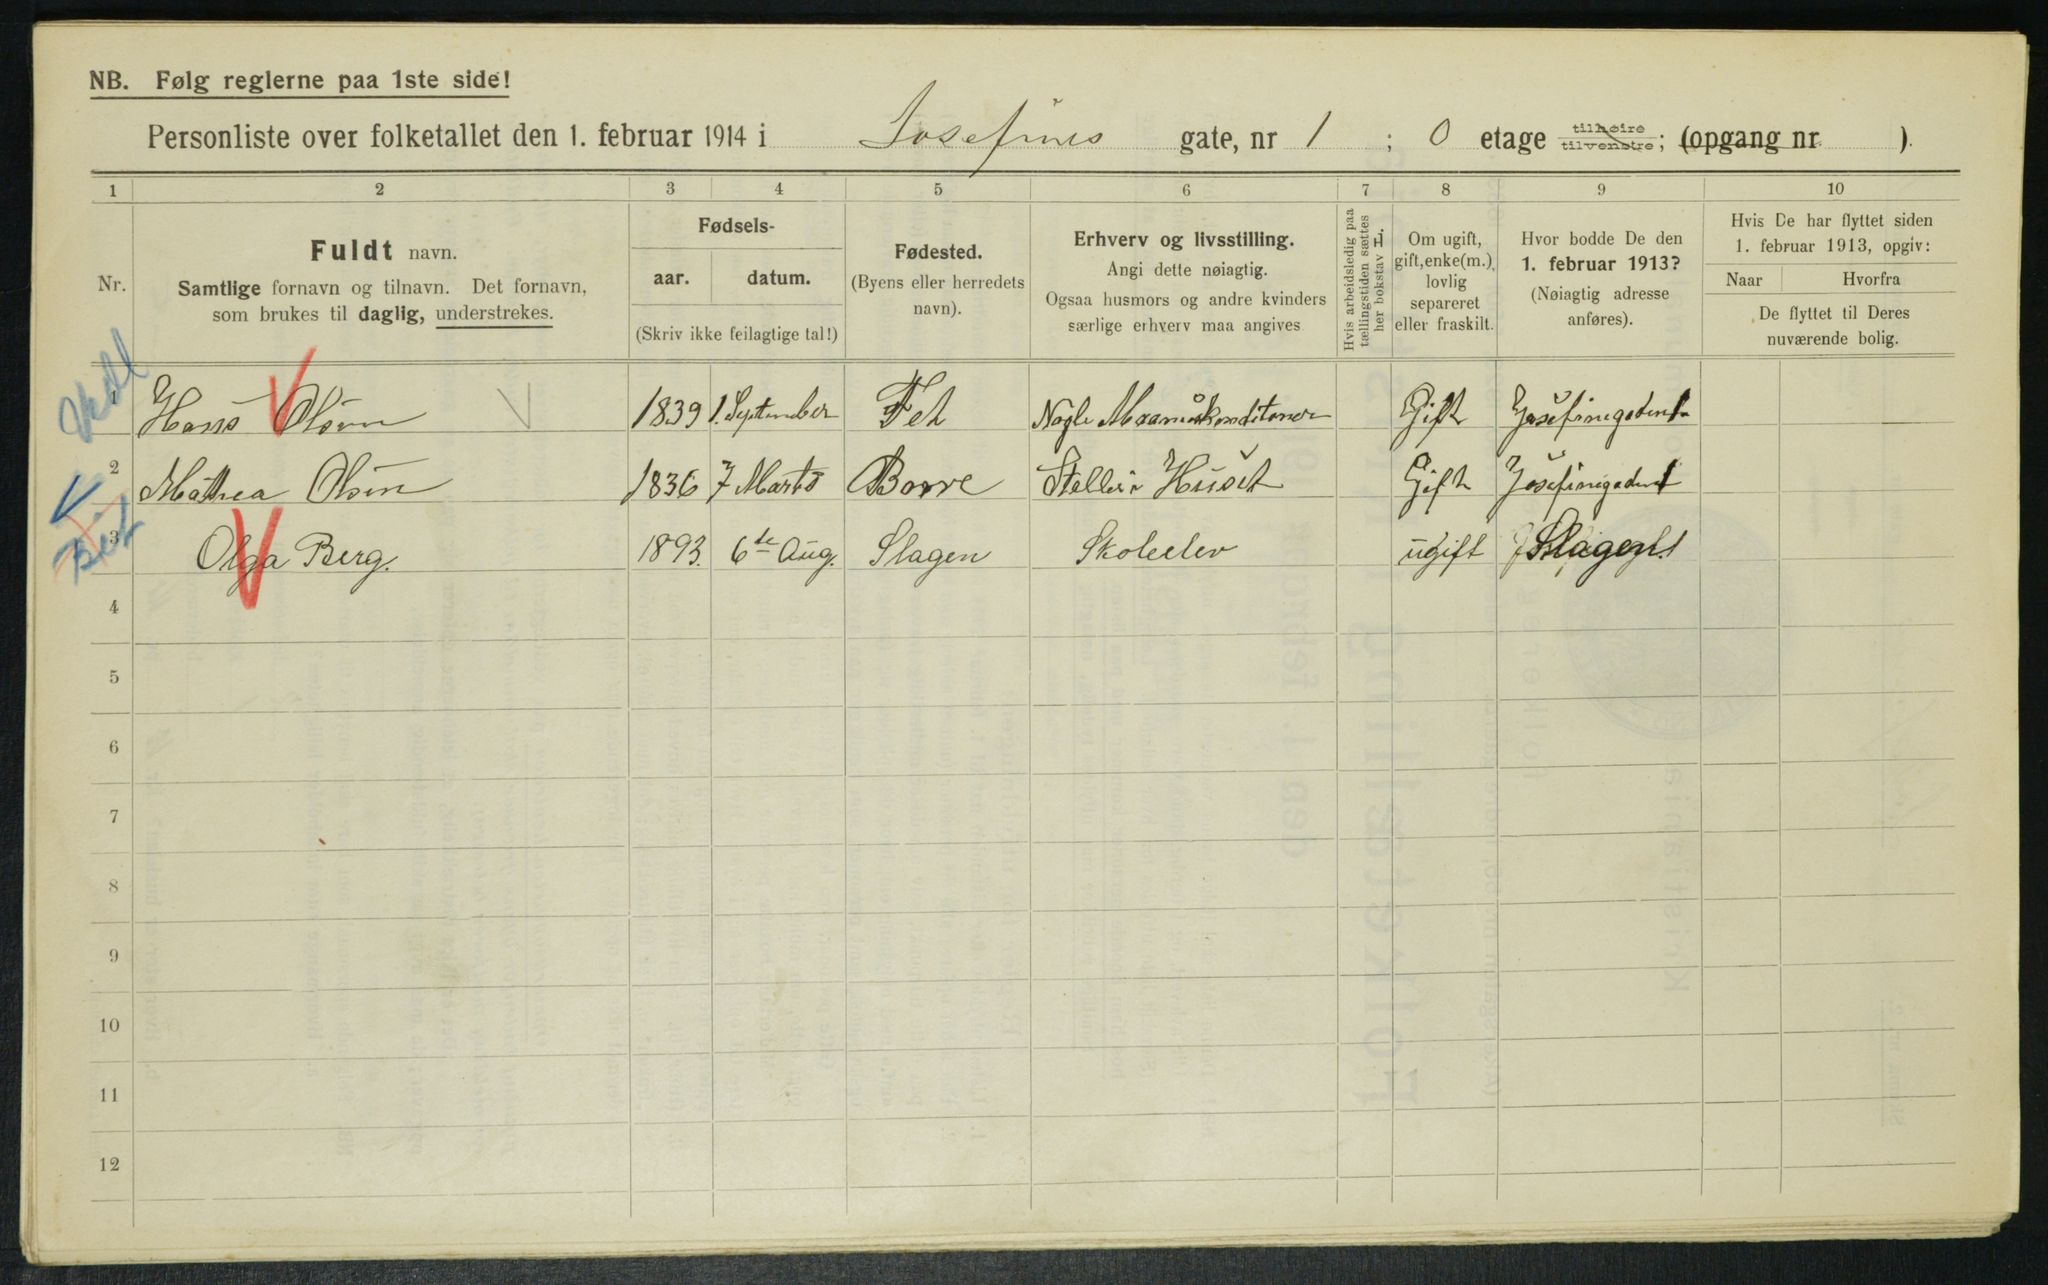 NB. Følg reglerne paa 1ste side!
Personliste over folketallet den 1. februar 1914 i Josefines gate, nr 1 ; 0 etage tilhøire tilvenstre; (opgang nr )
1 2 3 4 5 6 7 8 9 10
Nr.
Fuldt navn.
Samtlige fornavn og tilnavn. Det fornavn,
som brukes til daglig, understrekes.
Fødsels-
aar. datum.
(Skriv ikke feilagtige tal!)
Fødested.
(Byens eller herredets
navn).
Erhverv og livsstilling.
Angi dette nøiagtig.
Ogsaa husmors og andre kvinders
særlige erhverv maa angives
Hvis arbeidsledig paa
tællingstiden sættes
her bokstav L.
Om ugift,
gift, enke(m.),
lovlig
separeret
eller fraskilt.
Hvor bodde De den
1. februar 1913?
(Nøiagtig adresse
anføres).
Hvis De har flyttet siden
1. februar 1913, opgiv:
Naar Hvorfra
De flyttet til Deres
nuværende bolig.
1 Hans Olsen 1839 1. September Fet Gift Josefinegaden 1
2 Mathea Olsen 1836 7 Marts Borre Steller i Huset Gift Josefinegaden 1
3 Olga Berg. 1893. 6te Aug. Slagen Skoleelev ugift Slagen
4
5
6
7
8
9
10
11
12